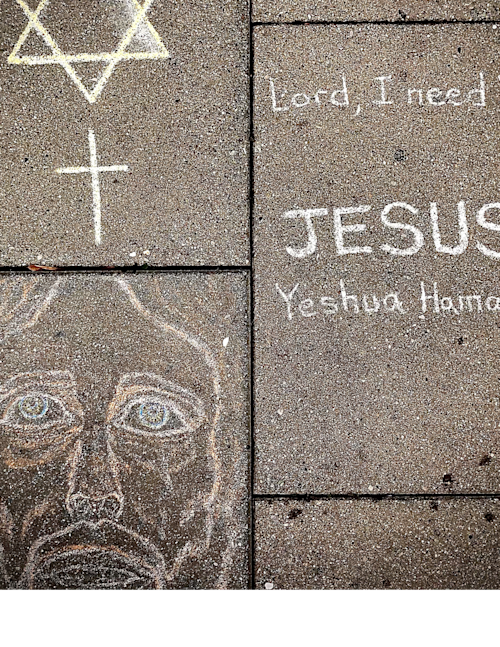 Lord, I need
JESUS
Yeshua